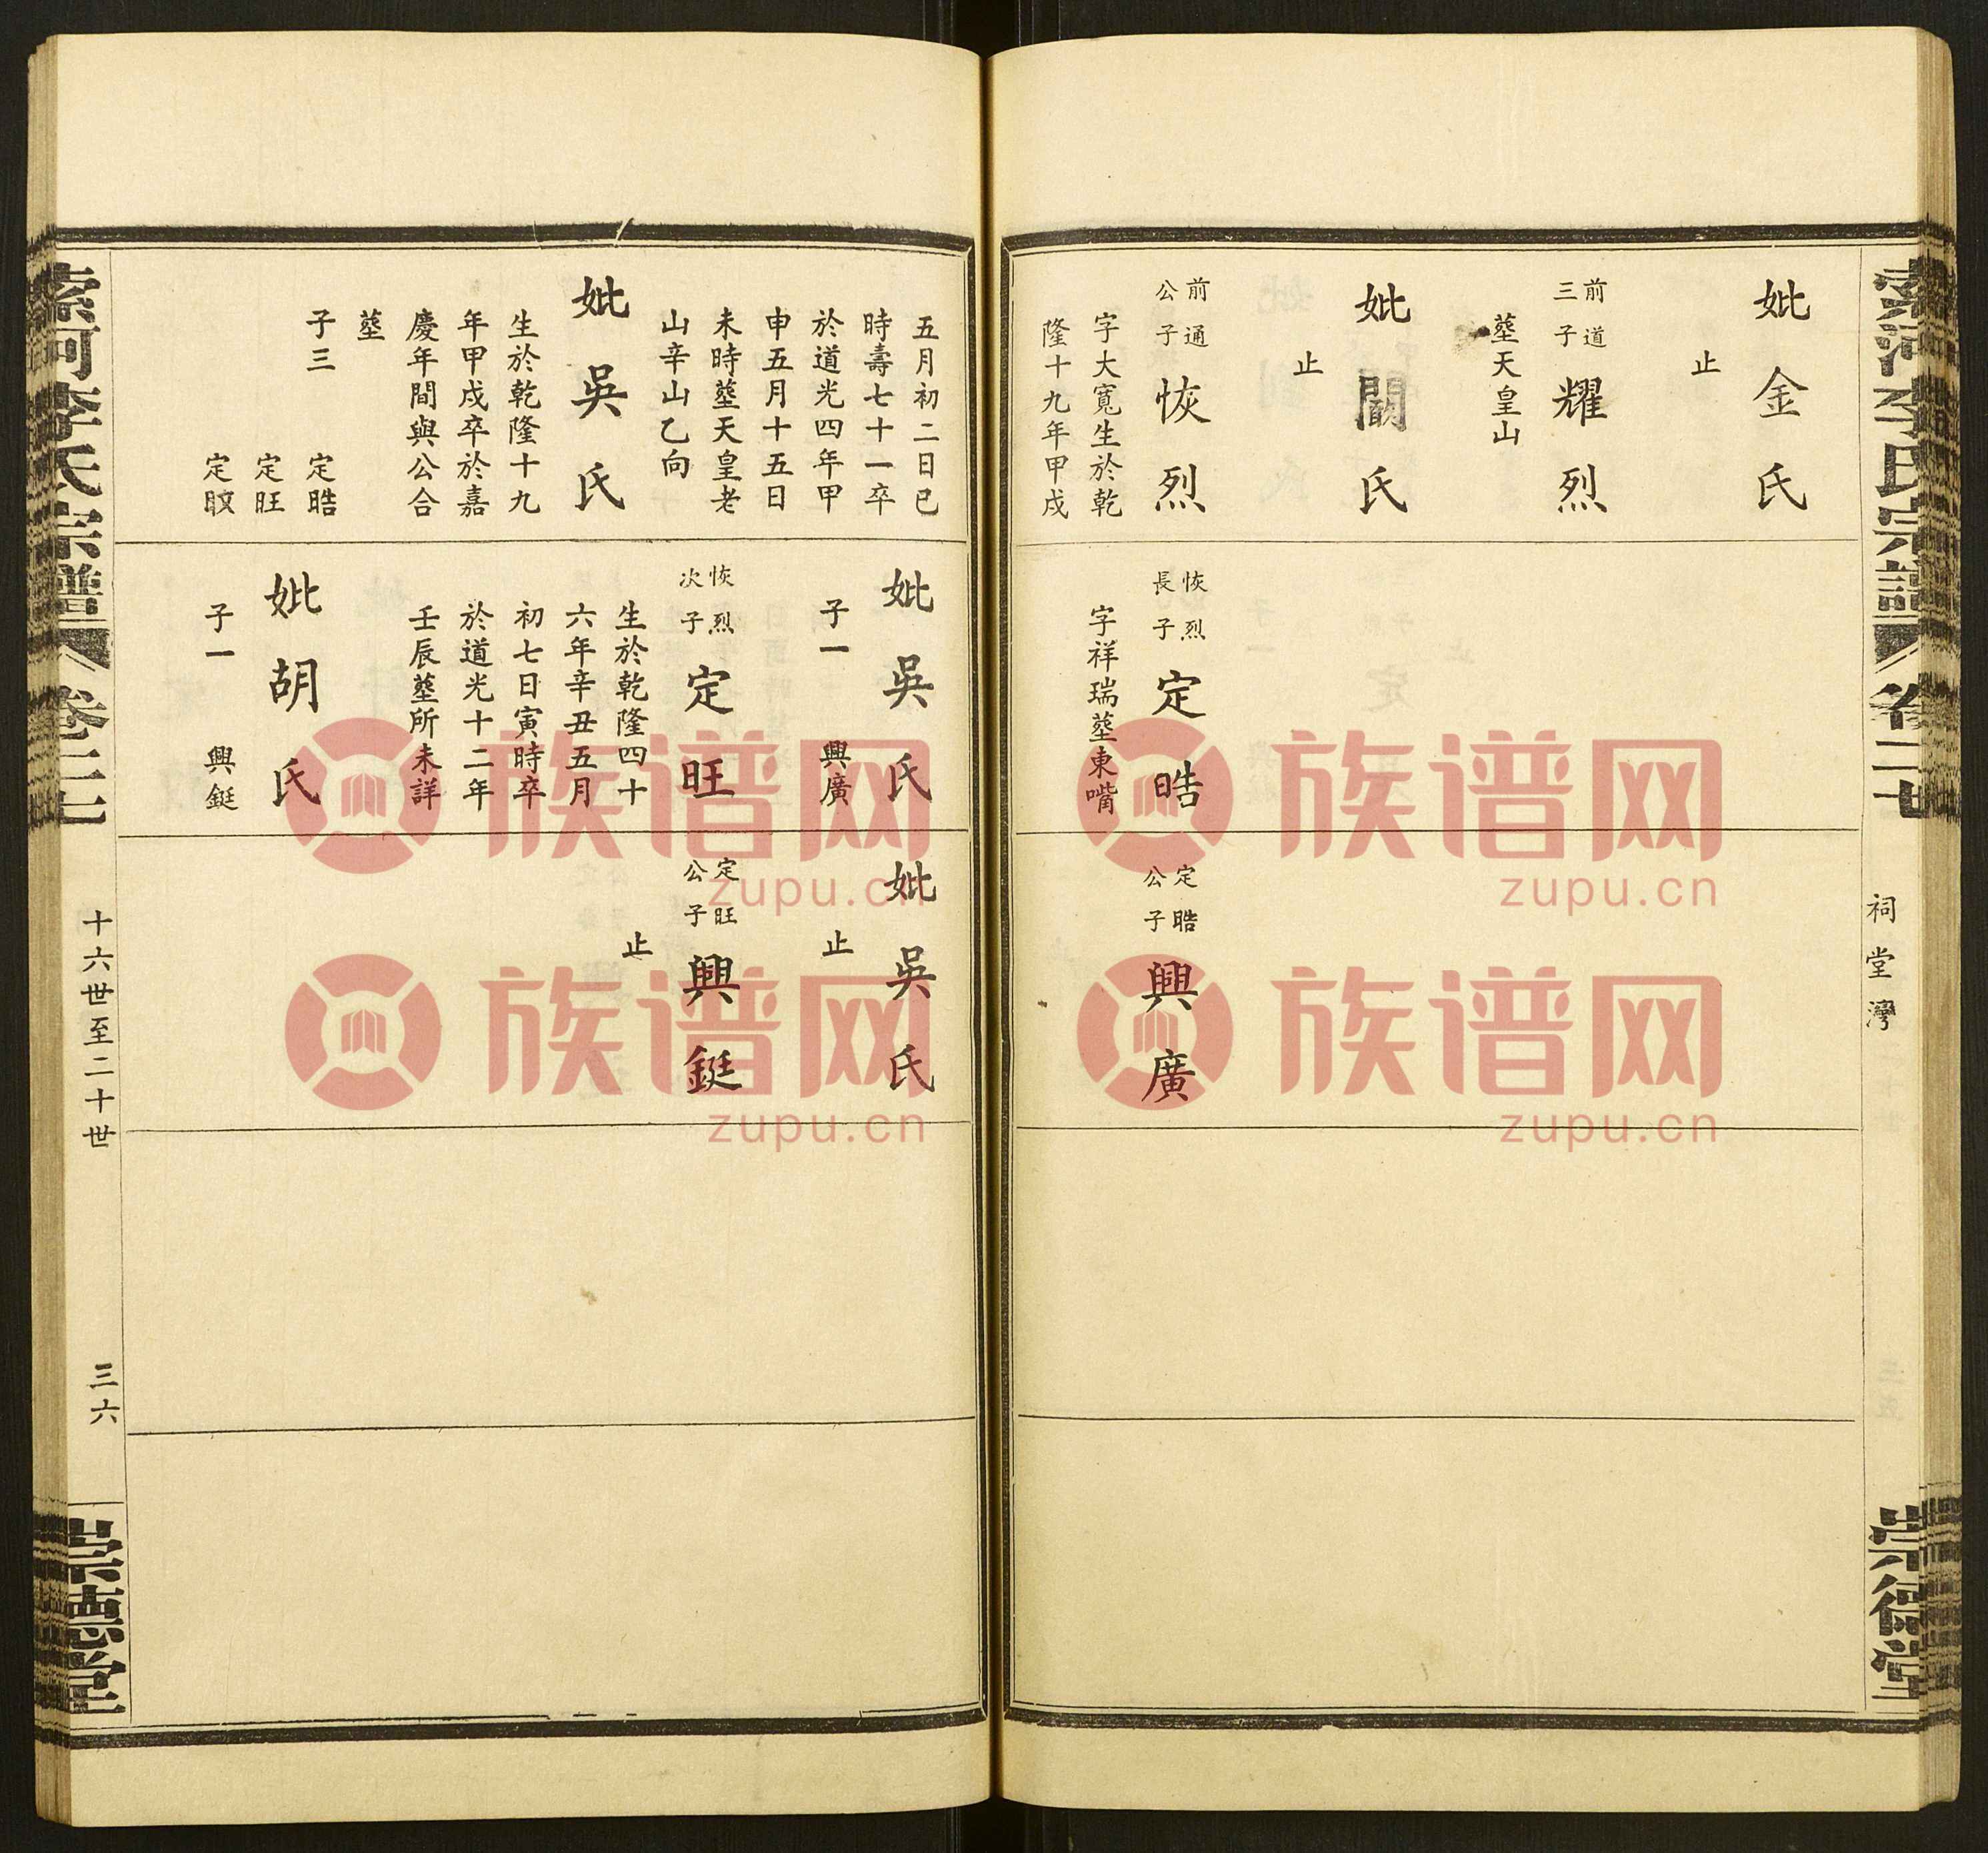 索河李氏宗譜
卷二七
祠堂灣
崇德堂
妣金氏
止
前道三子
耀烈
塟天皇山
妣闞氏
止
前通公子
恢烈
字大寬生於乾
隆十九年甲戌
恢烈長子
定晧
字祥瑞塟東嘴
定晧公子
興廣
五月初二日巳
時壽七十一卒
於道光四年甲
申五月十五日
未時塟天皇老
山辛山乙向
妣吳氏
生於乾隆十九
年甲戌卒於嘉
慶年間與公合
塟
子三 定晧
定旺
定旼
妣吳氏
子一 興廣
恢烈次子
定旺
生於乾隆四十
六年辛丑五月
初七日寅時卒
於道光十二年
壬辰塟所未詳
妣胡氏
子一 興鋌
妣吳氏
止
定旺公子
興鋌
止
索河李氏宗譜
卷二七
十六世至二十世
三六
崇德堂
族谱网
zupu.cn
族谱网
zupu.cn
族谱网
zupu.cn
族谱网
zupu.cn